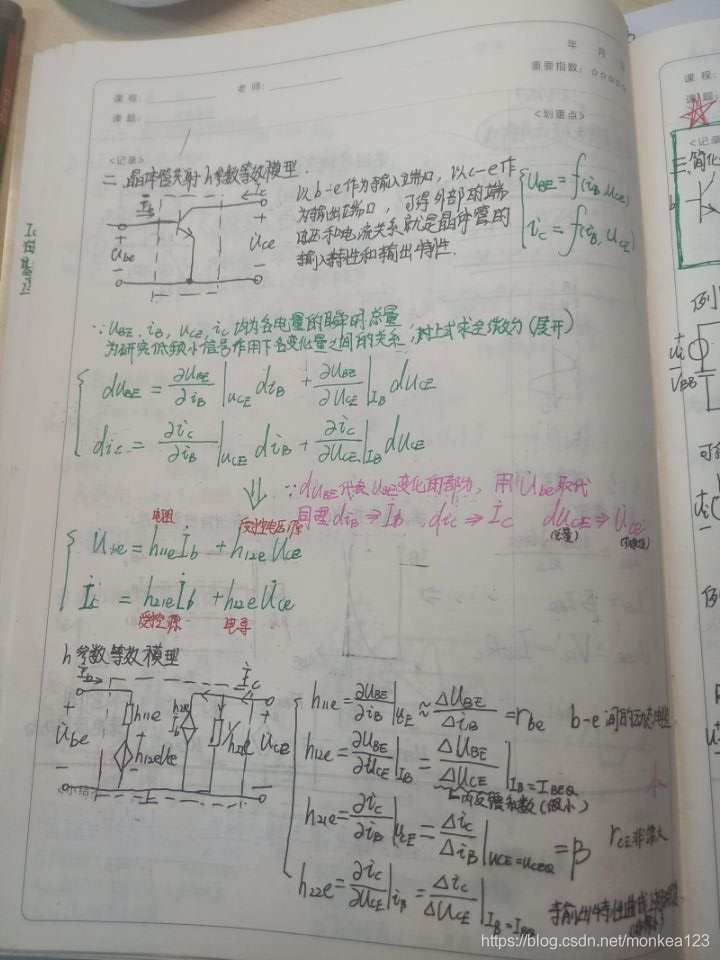 年 月
重要指数：☆☆☆☆☆
课程：
老师：
课题：
<划重点>
<记录>
二、晶体管共射h参数等效模型.
以b-e作为输入端口，以c-e作
为输出端口，可得外部的端
电压和电流关系就是晶体管的
输入特性和输出特性.
u_BE = f(i_B, u_CE)
i_C = f(i_B, u_CE)
İb
İc
+ U̇be −
+ U̇ce −
∵ u_BE, i_B, u_CE, i_C 均为各电量的瞬时总量
为研究低频小信号作用下各变化量之间的关系，对上式求全微分(展开)
du_BE = ∂u_BE/∂i_B |u_CE di_B + ∂u_BE/∂u_CE |I_B du_CE
di_C = ∂i_C/∂i_B |u_CE di_B + ∂i_C/∂u_CE |I_B du_CE
⇓
∵ du_BE代表u_BE变化的部分，用U̇be取代
同理 di_B ⇒ İb di_C ⇒ İc du_CE ⇒ U̇ce
(总量)
电阻
受控电压源
U̇be = h11e İb + h12e U̇ce
İc = h21e İb + h22e U̇ce
受控源
电导
h参数等效模型
İb
İc
+ U̇be −
h11e
h12e U̇ce
h21e İb
1/h22e
+ U̇ce −
<小结>
h11e = ∂u_BE/∂i_B |u_CE ≈ Δu_BE/Δi_B = rbe b-e间的动态电阻
h12e = ∂u_BE/∂u_CE |I_B = Δu_BE/Δu_CE |I_B = I_BEQ
内反馈系数(很小)
h21e = ∂i_C/∂i_B |u_CE = Δi_C/Δi_B |u_CE = u_CEQ = β
r_CE非常大
h22e = ∂i_C/∂u_CE |i_B = Δi_C/Δu_CE |I_B = I_BQ
课程：
课题：
<记录
三、简化
b
例
V_BB
可
例
https://blog.csdn.net/monkea123